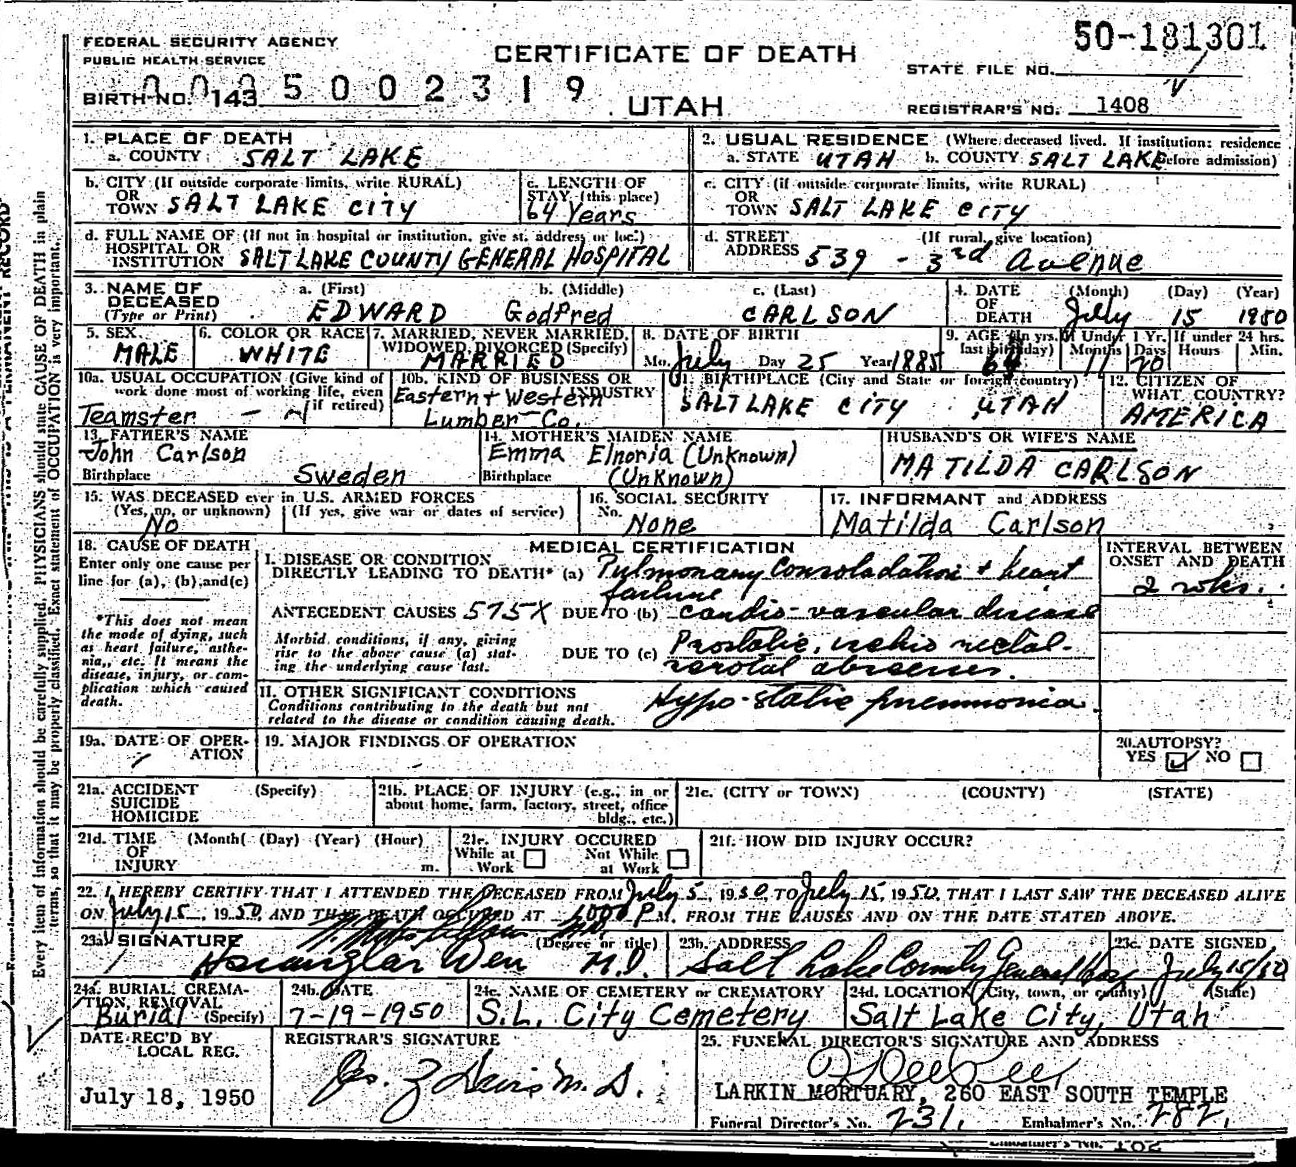 50-181301
FEDERAL SECURITY AGENCY
PUBLIC HEALTH SERVICE
CERTIFICATE OF DEATH
STATE FILE NO.
BIRTH NO. 143
5 0 0 2 3 1 9
UTAH
REGISTRAR'S NO. 1408
1. PLACE OF DEATH
a. COUNTY SALT LAKE
2. USUAL RESIDENCE (Where deceased lived. If institution: residence before admission)
a. STATE UTAH b. COUNTY SALT LAKE
b. CITY (If outside corporate limits, write RURAL)
OR
TOWN SALT LAKE CITY
c. LENGTH OF
STAY (this place)
64 Years
c. CITY (if outside corporate limits, write RURAL)
OR
TOWN SALT LAKE CITY
d. FULL NAME OF (If not in hospital or institution, give st. address or loc.)
HOSPITAL OR
INSTITUTION SALT LAKE COUNTY GENERAL HOSPITAL
d. STREET (If rural, give location)
ADDRESS 539 - 3rd Avenue
3. NAME OF
DECEASED
(Type or Print)
a. (First) b. (Middle) c. (Last)
EDWARD Godfred CARLSON
4. DATE
OF
DEATH
(Month) (Day) (Year)
July 15 1950
5. SEX
MALE
6. COLOR OR RACE
WHITE
7. MARRIED, NEVER MARRIED,
WIDOWED, DIVORCED (Specify)
MARRIED
8. DATE OF BIRTH
Mo. July Day 25 Year 1885
9. AGE (In yrs. last birthday) 64
If Under 1 Yr. Months 11 Days 20
If under 24 hrs. Hours Min.
10a. USUAL OCCUPATION (Give kind of
work done most of working life, even
if retired)
Teamster
10b. KIND OF BUSINESS OR
INDUSTRY
Eastern + Western
Lumber Co.
11. BIRTHPLACE (City and State or foreign country)
SALT LAKE CITY UTAH
12. CITIZEN OF
WHAT COUNTRY?
AMERICA
13. FATHER'S NAME
John Carlson
Birthplace Sweden
14. MOTHER'S MAIDEN NAME
Emma Elnoria (Unknown)
Birthplace (Unknown)
HUSBAND'S OR WIFE'S NAME
MATILDA CARLSON
15. WAS DECEASED ever in U.S. ARMED FORCES
(Yes, no, or unknown) (If yes, give war or dates of service)
No
16. SOCIAL SECURITY
No. None
17. INFORMANT and ADDRESS
Matilda Carlson
18. CAUSE OF DEATH
Enter only one cause per
line for (a), (b), and (c)
*This does not mean
the mode of dying, such
as heart failure, asthe-
nia, etc. It means the
disease, injury, or com-
plication which caused
death.
MEDICAL CERTIFICATION
INTERVAL BETWEEN
ONSET AND DEATH
I. DISEASE OR CONDITION
DIRECTLY LEADING TO DEATH* (a) Pulmonary Consoladation + heart
failure
2 wks.
ANTECEDENT CAUSES 575X DUE TO (b) cardio-vascular disease
Morbid conditions, if any, giving
rise to the above cause (a) stat-
ing the underlying cause last.
DUE TO (c) Prostatic, ischio rectal-
abscesses.
II. OTHER SIGNIFICANT CONDITIONS
Conditions contributing to the death but not
related to the disease or condition causing death.
Hypo-static pneumonia.
19a. DATE OF OPER-
ATION
19. MAJOR FINDINGS OF OPERATION
20. AUTOPSY?
YES NO
21a. ACCIDENT (Specify)
SUICIDE
HOMICIDE
21b. PLACE OF INJURY (e.g., in or
about home, farm, factory, street, office
bldg., etc.)
21c. (CITY or TOWN) (COUNTY) (STATE)
21d. TIME (Month) (Day) (Year) (Hour)
OF
INJURY m.
21e. INJURY OCCURED
While at Work Not While at Work
21f. HOW DID INJURY OCCUR?
22. I HEREBY CERTIFY THAT I ATTENDED THE DECEASED FROM July 5, 1950, TO July 15, 1950, THAT I LAST SAW THE DECEASED ALIVE
ON July 15, 1950, AND THAT DEATH OCCURED AT P.M. FROM THE CAUSES AND ON THE DATE STATED ABOVE.
23a. SIGNATURE (Degree or title)
Wen M.D.
23b. ADDRESS
Salt Lake County General Hosp
23c. DATE SIGNED
July 15/50
24a. BURIAL, CREMA-
TION, REMOVAL
Burial (Specify)
24b. DATE
7-19-1950
24c. NAME OF CEMETERY or CREMATORY
S.L. City Cemetery
24d. LOCATION (City, town, or county) (State)
Salt Lake City, Utah
DATE REC'D BY
LOCAL REG.
July 18, 1950
REGISTRAR'S SIGNATURE
25. FUNERAL DIRECTOR'S SIGNATURE AND ADDRESS
LARKIN MORTUARY, 260 EAST SOUTH TEMPLE
Funeral Director's No. 231. Embalmer's No. 282.
Every item of information should be carefully supplied. PHYSICIANS should state CAUSE OF DEATH in plain
terms, so that it may be properly classified. Exact statement of OCCUPATION is very important.